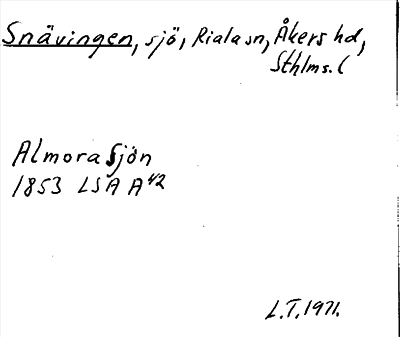 Snävingen, sjö, Riala sn, Åkers hd,
Sthlms. l
Almora Sjön
1853 LSA A 42
L.T. 1971.